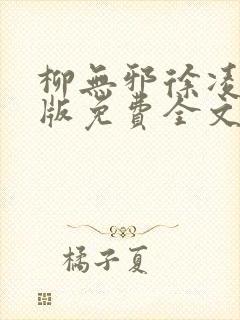 柳無邪徐凌
版免費全文
橘子夏